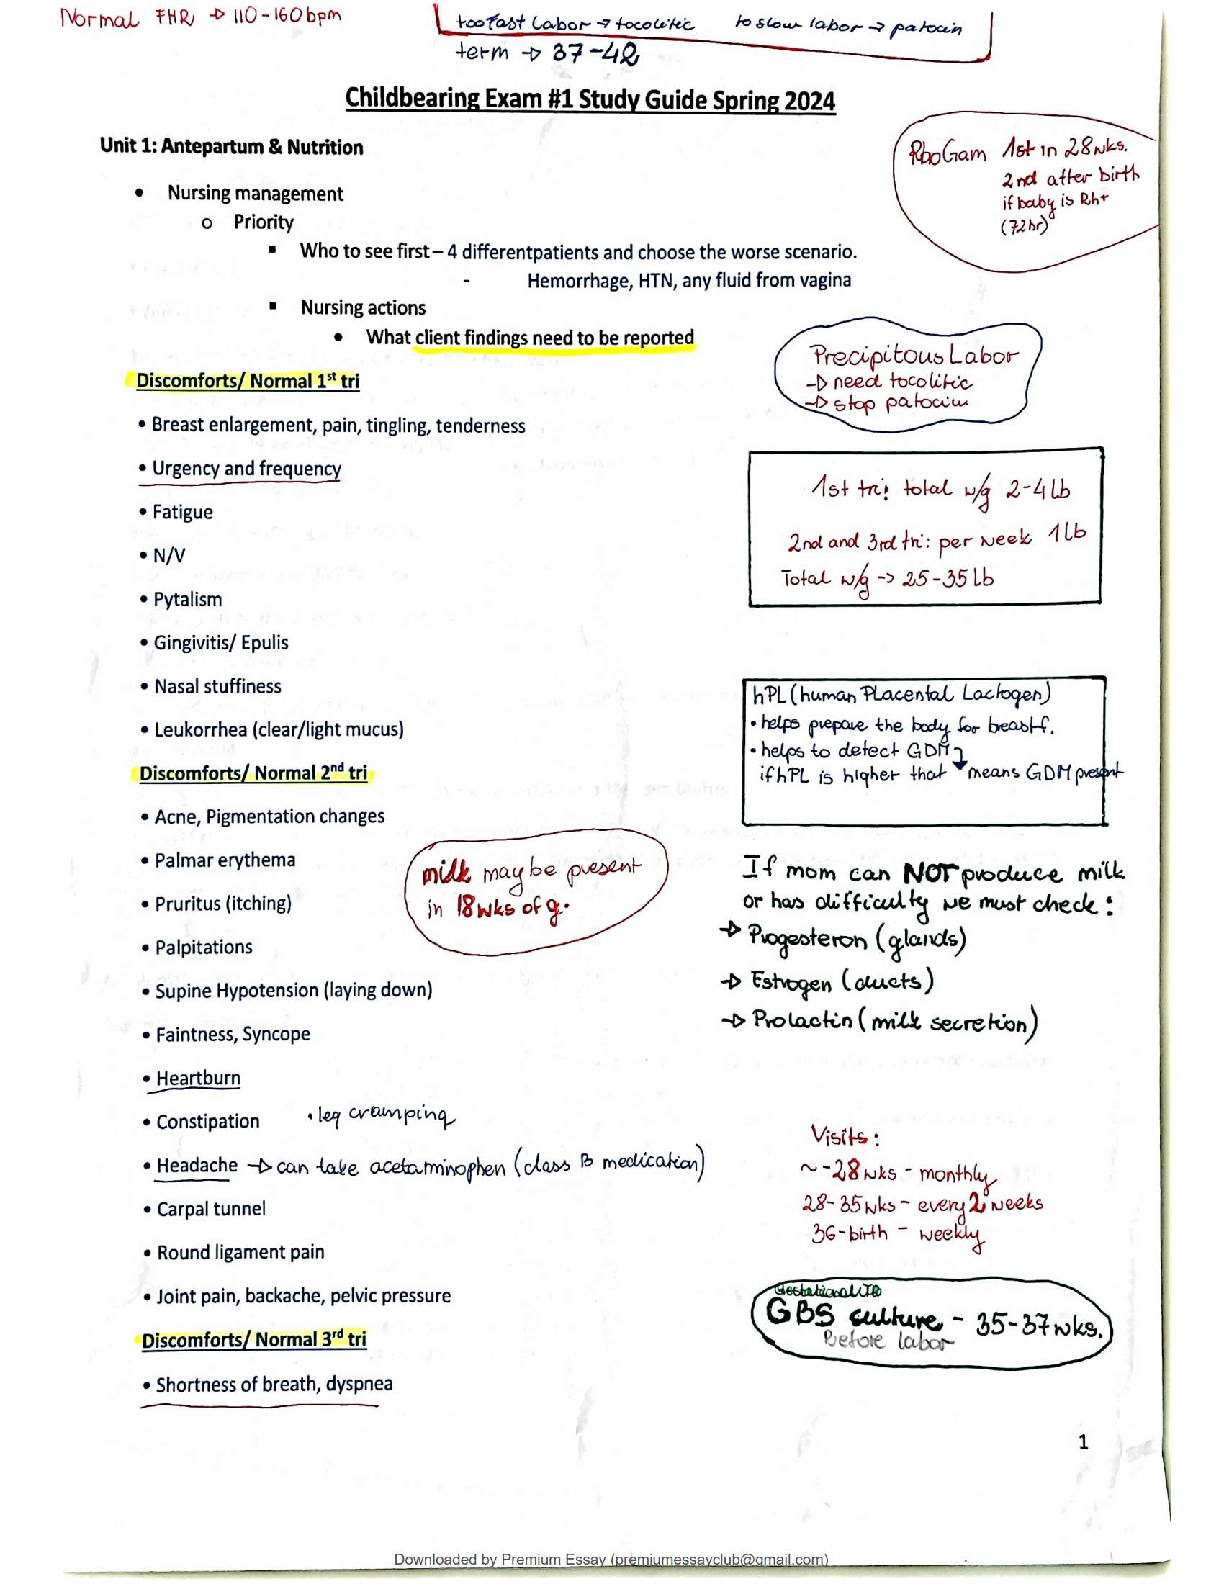 Normal FHR → 110-160bpm
too fast Labor → tocolitic to slow labor → patocin
term → 37-42
Childbearing Exam #1 Study Guide Spring 2024
Unit 1: Antepartum & Nutrition
RhoGam 1st in 28wks.
2nd after birth
if baby is Rh+
(72hr)
• Nursing management
o Priority
▪ Who to see first – 4 differentpatients and choose the worse scenario.
- Hemorrhage, HTN, any fluid from vagina
▪ Nursing actions
• What client findings need to be reported
Precipitous Labor
→ need tocolitic
→ stop patocin
Discomforts/ Normal 1st tri
• Breast enlargement, pain, tingling, tenderness
• Urgency and frequency
• Fatigue
• N/V
• Pytalism
• Gingivitis/ Epulis
• Nasal stuffiness
• Leukorrhea (clear/light mucus)
1st tri: total w/g 2-4Lb
2nd and 3rd tri: per week 1Lb
Total w/g -> 25-35Lb
hPL (human Placental Lactogen)
• helps prepare the body for breastf.
• helps to detect GDM
if hPL is higher that ↓ means GDM present
Discomforts/ Normal 2nd tri
• Acne, Pigmentation changes
• Palmar erythema
• Pruritus (itching)
• Palpitations
• Supine Hypotension (laying down)
• Faintness, Syncope
• Heartburn
• Constipation • leg cramping
• Headache → can take acetaminophen (class B medication)
• Carpal tunnel
• Round ligament pain
• Joint pain, backache, pelvic pressure
milk may be present
in 18wks of g.
If mom can NOT produce milk
or has difficulty we must check:
→ Progesteron (glands)
→ Estrogen (ducts)
→ Prolactin (milk secretion)
Visits:
~-28wks - monthly
28-35wks - every 2 weeks
36-birth - weekly
GBS culture - 35-37wks.
Before labor
Discomforts/ Normal 3rd tri
• Shortness of breath, dyspnea
1
Downloaded by Premium Essay (premiumessayclub@gmail.com)